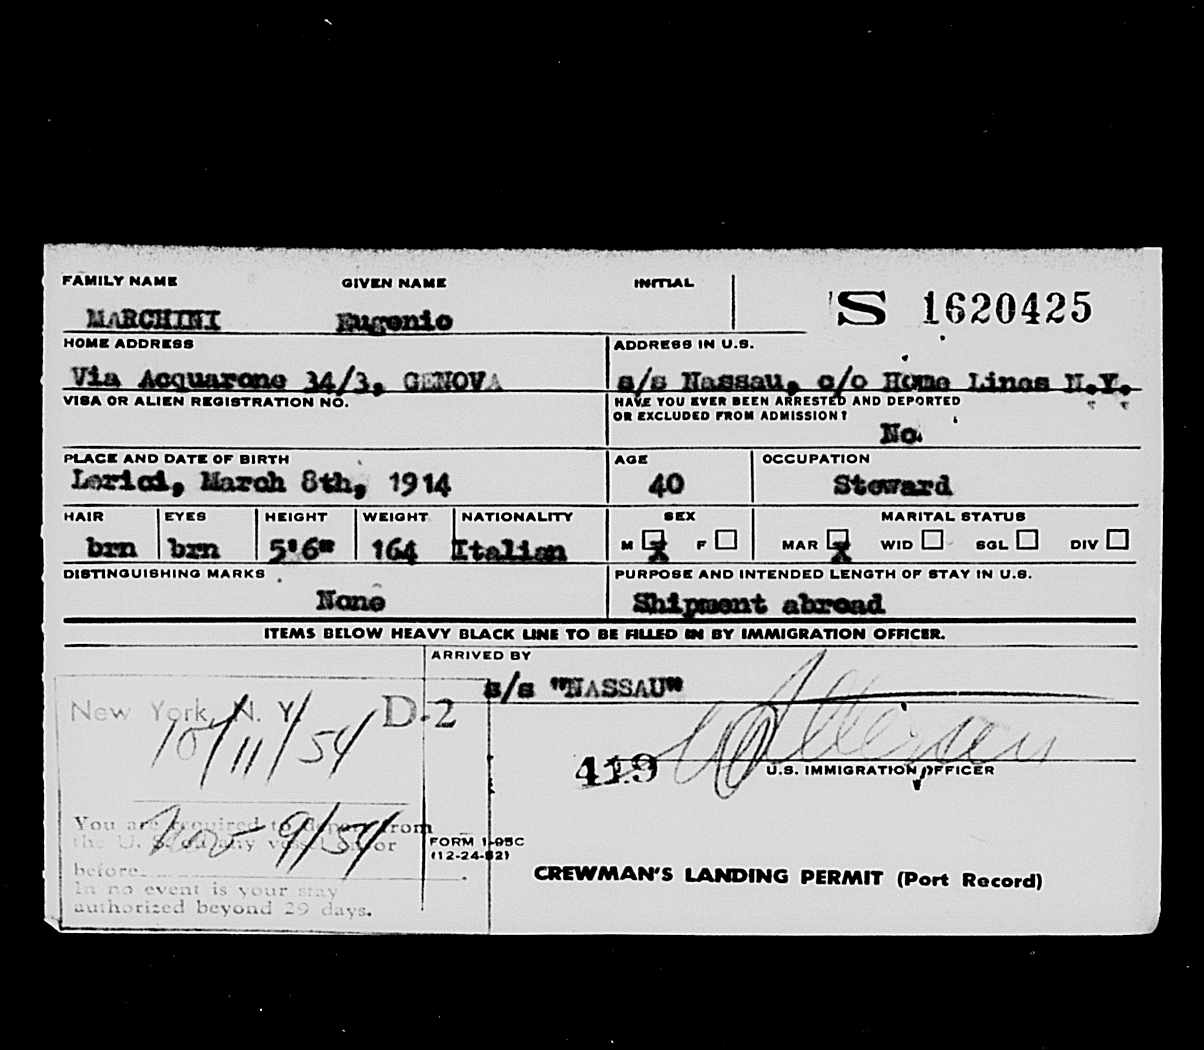 FAMILY NAME GIVEN NAME INITIAL
S 1620425
MARCHINI Eugenio
HOME ADDRESS ADDRESS IN U.S.
Via Acquarone 34/3, GENOVA s/s Nassau, c/o Home Lines N.Y.
VISA OR ALIEN REGISTRATION NO. HAVE YOU EVER BEEN ARRESTED AND DEPORTED
OR EXCLUDED FROM ADMISSION?
No.
PLACE AND DATE OF BIRTH AGE OCCUPATION
Lerici, March 8th, 1914 40 Steward
HAIR EYES HEIGHT WEIGHT NATIONALITY SEX MARITAL STATUS
brn brn 5'6" 164 Italian M X F MAR X WID SGL DIV
DISTINGUISHING MARKS PURPOSE AND INTENDED LENGTH OF STAY IN U.S.
None Shipment abroad
ITEMS BELOW HEAVY BLACK LINE TO BE FILLED IN BY IMMIGRATION OFFICER.
ARRIVED BY
s/s "NASSAU"
New York, N. Y. D-2
10/11/54
419
U.S. IMMIGRATION OFFICER
You are required to depart from
the U. S. on any vessel on or
before Nov 9/54
In no event is your stay
authorized beyond 29 days.
FORM I-95C
(12-24-52)
CREWMAN'S LANDING PERMIT (Port Record)